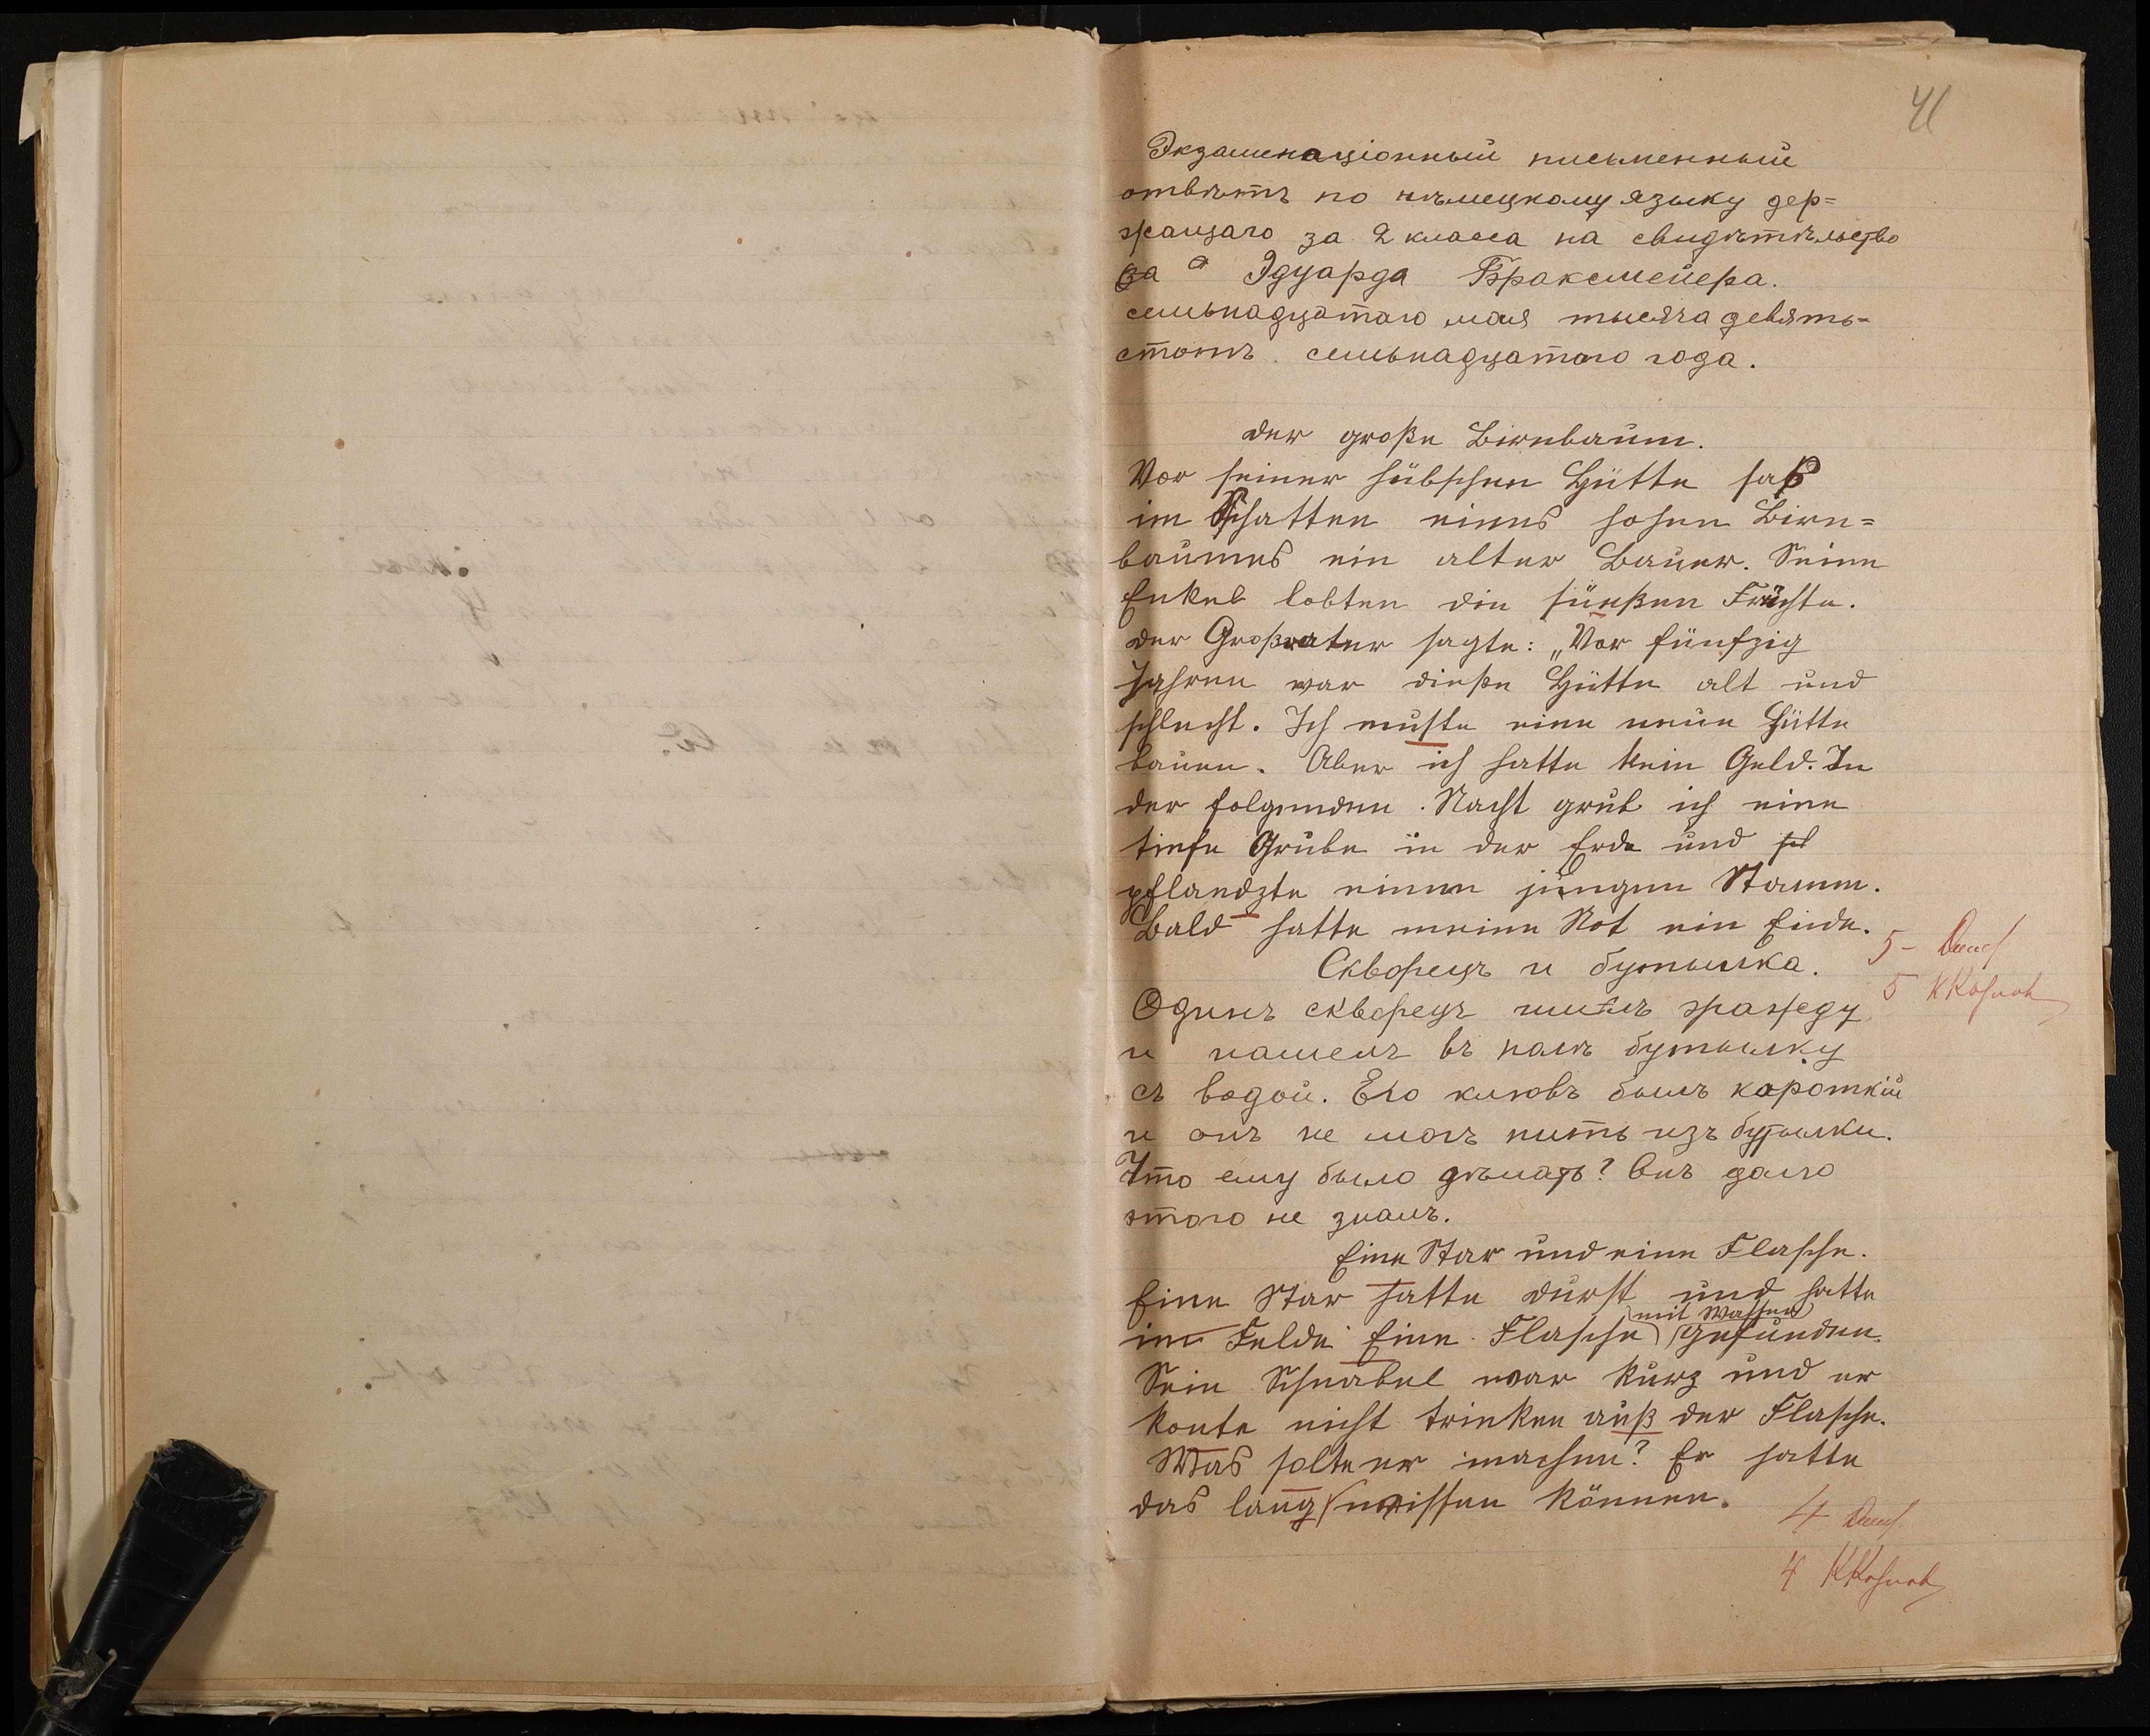 41
Экзаменаціонный письменный
отвѣтъ по нѣмецкому языку дер=
жащаго за 2 класса на свидѣтѣльство
Эдуарда Браксмейера.
семьнадцатаго мая тысяча девять=
стотъ семьнадцатаго года.
der große Birnbaum.
Vor seiner hübschen Hütte saß
im Schatten eines hohen Birn=
baumes ein alter Bauer. Seine
Enkel lobten die süeßen Früchte.
der Großvater sagte: „Vor fünfzig
Jahren war dieße Hütte alt und
schlecht. Ich muste eine neue Hütte
bauen. Aber ich hatte kein Geld. In
der folgenden Nacht grub ich eine
tiefe Grube in der Erde und
pflandzte einen jungen Stamm.
Bald hatte meine Not ein Ende.
5-
Скворецъ и бутылка.
5
Одинъ скворецъ имѣлъ жажеду
и нашелъ въ полѣ бутылку
съ водой. Его клювъ былъ короткій
и онъ не могъ пить изъ бутылки.
Что ему было дѣлать? Онъ долго
этого не зналъ.
Eine Star und eine Flasche.
Eine Star hatte durst und hatte
mit Wasser
im Felde Eine Flasche gefunden.
Sein Schnabel war kurz und er
konte nicht trinken auß der Flasche.
Was solte er machen? Er hatte
das lang wissen können.
4
4